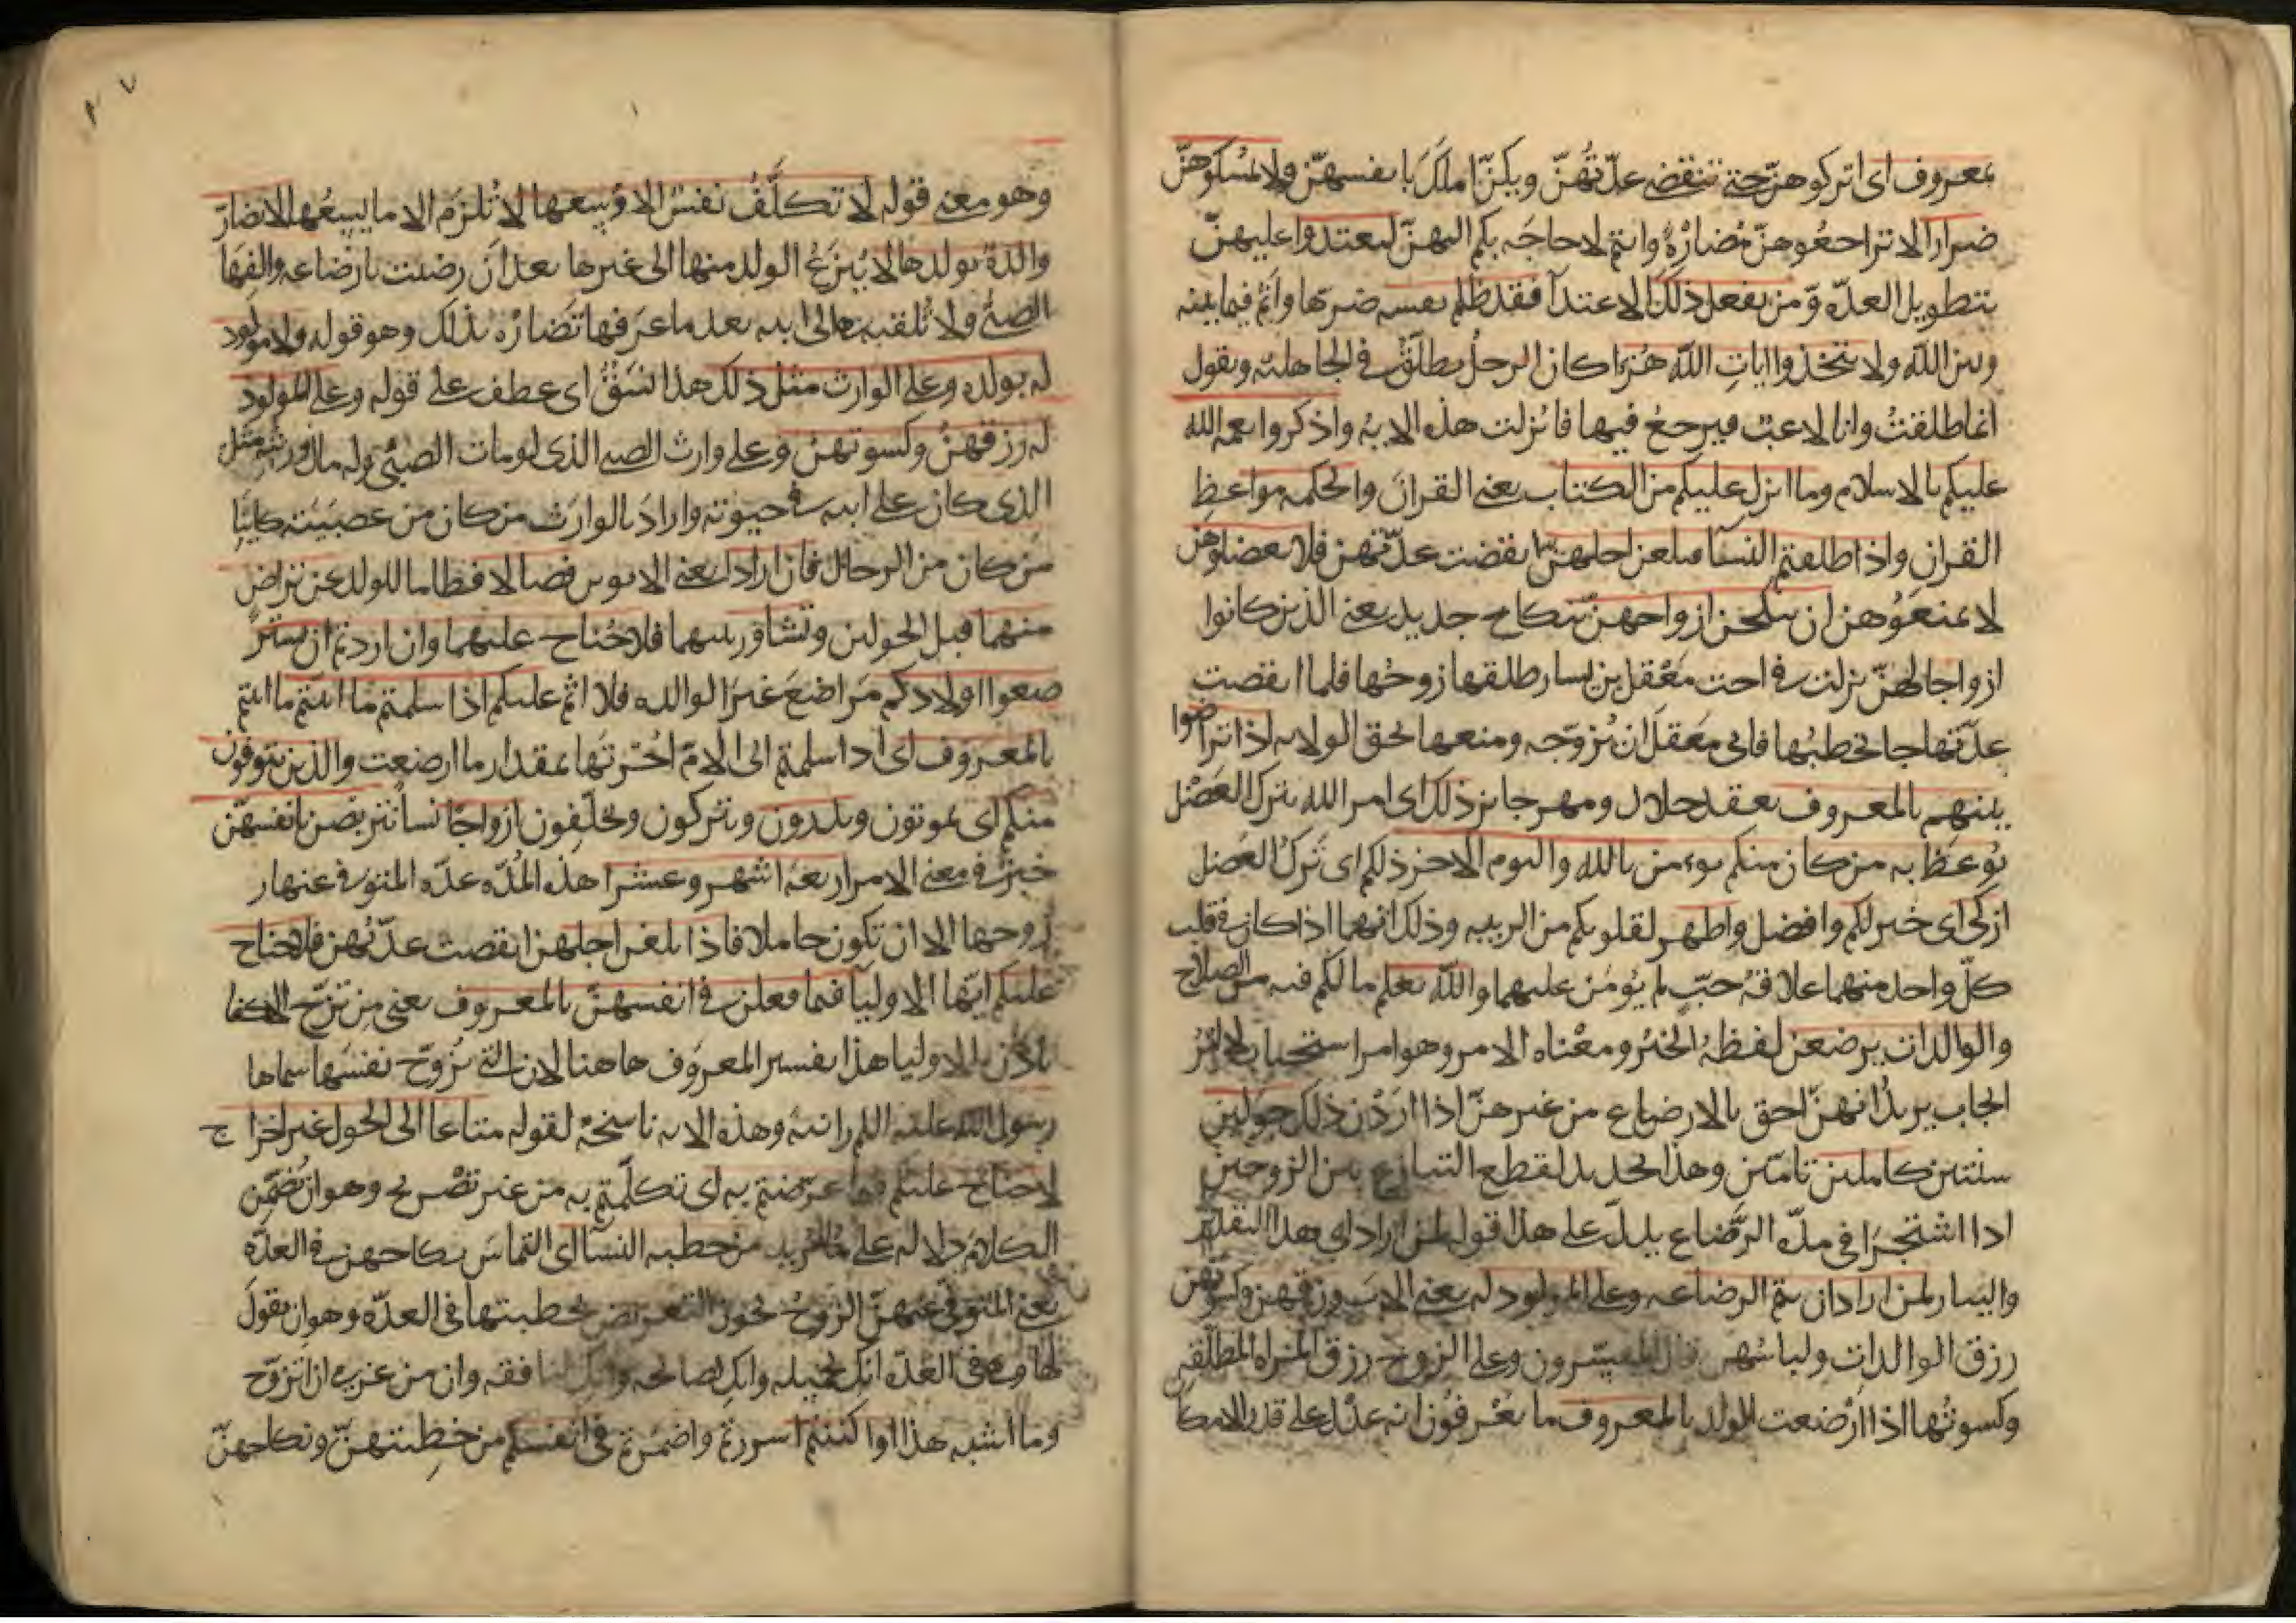 بمعروف اى اتركوهنّ حتى تنقضى عدّتهُنّ ويكنّ املَكَ بانفسهنّ ولا تمسكوهنّ
ضرارا لا تراجعُوهنّ مُضارّةً وانتم لا حاجَه بكم اليهنّ لتعتدوا عليهنّ
بتطويل العدّه ومن يفعل ذلك الاعتدآ فقد ظلم نفسه ضرّها واثم فيما بينه
وبين الله ولا تتخذوا اياتِ اللّه هُزءا كان الرجلُ يطلّقُ فى الجاهليّه ويقول
انما طلقتُ وانا لاعبٌ فيرجعُ فيها فانزلت هذه الايهُ واذكروا نعمه الله
عليكم بالاسلام وما انزل عليكم من الكتاب يعنى القرانَ والحكمه مواعظ
القران واذا طلقتم النسآ فبلغن اجلهنّ انقضت عدّتهن فلا تعضلوهنّ
لا تمنعَوُهن ان ينكحن ازواجهنّ بنكاح جديد يعنى الذين كانوا
ازواجا لهنّ نزلت فى اخت مَعْقل بن يسار طلقها زوجُها فلما انقضت
عدّتها جا يخطبُها فابى مَعقلٌ ان يُزوّجه ومنعها بحق الولايه اذا تراضوا
بينهم بالمعروف بعقد حلال ومهر جايز ذلك اى امر الله بترك العَضْل
يُوعَظُ به من كان منكم يومن بالله واليوم الاخر ذلكم اى تَركُ العَضل
ازكى اى خير لكم وافضل واطهر لقلوبكم من الريبه وذلك انهما اذا كان فى قلب
كلّ واحد منهما علاقهُ حبّ لم يُومَن عليهما واللّه يعلم ما لكم فيه من الصلاح
والوالدات يرضعن لفظهُ الخبرُ ومعْناه الامر وهو امر استحباب لا امرُ
ايجاب يريدُ انهنّ احق بالارضاع من غيرهنّ اذا اردْن ذلك حولين
سنتين كاملين تامّين وهذا تحديد لقطع التنازع بين الزوجين
اذا اشتجرَا فى مدّه الرّضاع يدلّ على هذا قوله لمن اراد اى هذا التقدير
والبيان لمن اراد ان يتم الرضاعه وعلى المولود له يعنى الاب رزقهن وكسوتهن
رزق الوالدات ولباسُهن قال المفسّرون وعلى الزوج رزق المراه المطلّقه
وكسوتُها اذا ارْضعت الولد بالمعروف ما يعْرفُون انه عدْل على قدر الامكا
وهو معنى قوله لا تكلَّفُ نفسٌ الا وُسعها لا تُلزَم الا ما يسعُها لا تضارّ
والدة بولدها لا يُنزعُ الولد منها الى غيرها بعد ان رضيت بارضاعه والفها
الصبىُّ ولا تُلقيه هى الى ابيه بعد ما عَرفها تضارّه بذلك وهو قوله ولا مولود
له بولده وعلى الوارث مثل ذلك هذا نسَقٌ اى عطف على قوله وعلى المولود
له رزقهنّ وكسوتهنّ وعلى وارث الصبى الذى لو مات الصبىّ وله مال ورثه مثل
الذى كان على ابيه فى حيوته واراد بالوارث من كان من عصبَته كاينًا
من كان من الرجال فان ارادا يعنى الابوين فصالا فطاما للولد عن تراض
منهما قبل الحولين وتشاور بينهما فلا جُناح عليهما وان اردتم ان تستر
ضعوا اولادكم مَراضعَ غيرَ الوالده فلا اثم عليكم اذا سلمتم ما اتيتم ما اتيتم
بالمعروف اى اذا سلمتم الى الامّ اجْرتَها بمقدار ما ارضعت والذين يتوفون
منكم اى يموتون ويذرون ويتركون ويخلّفون ازواجًا نسآ يتربصن بانفسهنّ
خبرٌ فى معنى الامر اربعهَ اشهر وعشرا هذه المُدّه عدّه المتوفى عنها ز
زوجها الا ان تكون حاملا فاذا بلغن اجلهن انقضت عدّتُهن فلا جناح
عليكم ايّها الاوليا فيما فعلن فى انفسهنّ بالمعروف يعنى من تزوّج الاكفا
باذن الاوليا هذا تفسير المعروف هاهنا لان التى تُزوّج نفسَها سماها
رسول الله عليه السلم زانيهً وهذه الايه ناسخهٌ لقوله متاعا الى الحول غير اخرا ج
لا جناح عليكم فيما عرّضتم به اى تكلّمتم به من غير تصْريح وهو ان تُضمّن
الكلام دلاله على ما تُريد من خطبه النسآ اى التماسَ نكاحهنّ فى العدّه
يعنى المتوفى عنهنّ الزوجُ يجوز التعريض بخطبتها فى العدّه وهو ان يقولَ
لها وهى فى العدّه انكِ لجميله وانكِ لصالحه وانكِ لنافقه وان من عزمى ان اتزوّج
وما اشبه هذا او اكننتم اسررتم واضمرتم فى انفسكم من خطبتهنّ ونكاحهنّ